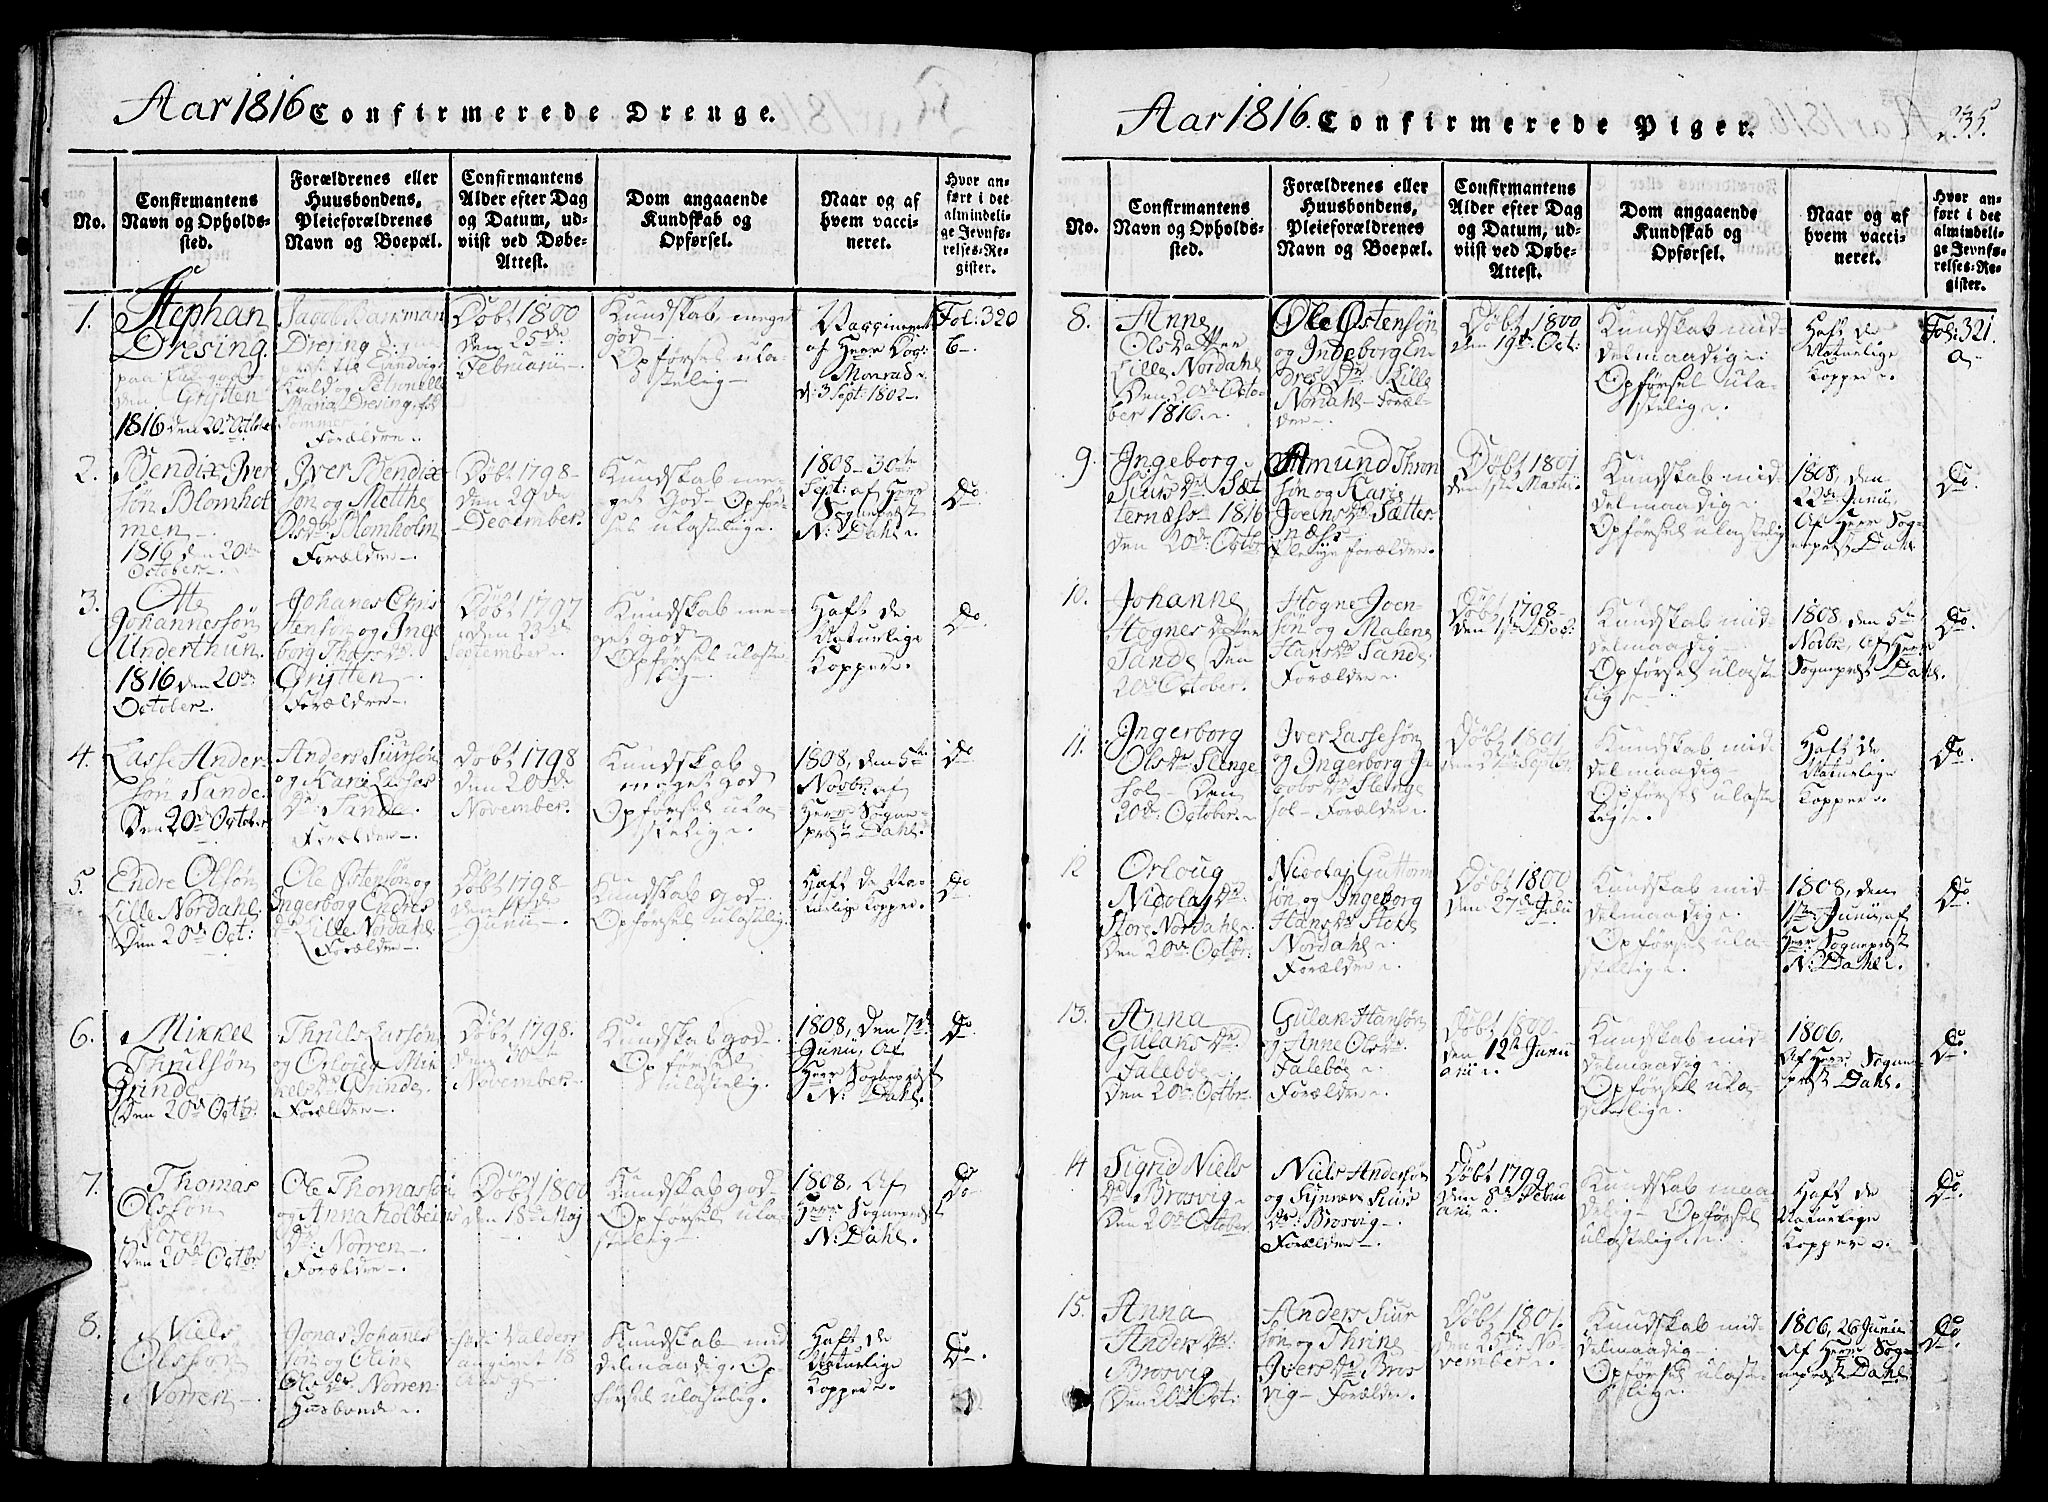 Aar 1816 Confirmerede Drenge.
No.
Confirmantens
Navn og Opholds-
sted.
Forældrenes eller
Huusbondens,
Pleieforældrenes
Navn og Boepæl.
Confirmantens
Alder efter Dag
og Datum, ud-
viist ved Døbe-
Attest.
Dom angaaende
Kundskab og
Opførsel.
Naar og af
hvem vacci-
neret.
Hvor an-
ført i det
almindeli-
ge Jevnfø-
relses-Re-
gister.
1.
Stephan
Dresing.
1816 den 20de October
Jacob
Dresing
Maria Dresing
Forældre
Døbt 1800
den 25de
Februarii
Kundskab, meget
god
Opførsel ula-
stelig
Vaccineret
af Herr
Monrad
d: 3 Sept: 1802
Fol: 320
b
2.
Bendix Iver
søn Blomhol
men
1816 den 20de
October
Iver Bendix
søn og Metthe
Olsdr Blomholm
Forældre
Døbt 1798
den 29de
December.
Kundskab me-
get God Opfør-
sel ulastelige.
1808 30te
Sept: af Herr
Sognepræst
N: Dahl
Do
3.
Otte
Johannessøn
Underthun.
1816 den 20de
October
Johanes Chris
tensøn og Inge
borg
Grytten
Forældre
Døbt 1797
den 23de
September
Kundskab me-
get god
Opførsel ulaste
lig
Haft de
Naturlige
Kopper
Do
4.
Lasse Anders
søn Sande.
Den 20de October
Anders Siursøn
og Kari Lasses
Dr Sande
Forældre
Døbt 1798
den 20de
November.
Kundskab
meget god
Opførsel ula-
stelige.
1808, den 5te
Novbr. af
Herr Sogne-
præst Dahl.
Do
5.
Endre Olsøn
Lille Nordahl.
Den 20de Oct:
Ole Østensøn og
Ingerborg Endres
dr Lille Nordahl
Forældre
Døbt 1798
den
Junii
Kundskab god
Opførsel ulastelig
Haft de Na-
turlige Kopper
Do
6.
Mikkel
Thrulsøn
Grinde
Den 20de Octbr.
Thruls Larsøn
og Orloug Mik
kels Dr Grinde
Forældre
Døbt 1798.
den 30te
November
Kundskab god
Opførsel
ulastelig.
1808, den 7de
Junii, Af
Herr Sognepræst
N: Dahl.
Do
7.
Thomas
Olsson
Noren
Den 20de Octbr
Ole Thomassøn
og Anna Kolbeins
Dr: Norren
Forældre
Døbt 1800
den 18de Maj
Kundskab god
Opførsel ula-
stelig
1808. Af
Herr Sognepræst
N: Dahl.
Do
8.
Niels
Olssøn
Norren
Jonas Johanes
søn og Elin
Ols dr Norren
Husbonde
angivet 18
Kundskab mid
delmaadig Op
førsel ulastelig.
Haft de
Naturlige
Kopper
Do
Aar 1816. Confirmerede Piger.
235.
No.
Confirmantens
Navn og Opholds-
sted.
Forældrenes eller
Huusbondens,
Pleieforældrenes
Navn og Boepæl.
Confirmantens
Alder efter Dag
og Datum, ud-
viist ved Døbe-
Attest.
Dom angaaende
Kundskab og
Opførsel.
Naar og af
hvem vacci-
neret.
Hvor an-
ført i det
almindeli-
ge Jevnfø-
relses-Re-
gister.
8.
Anne
Olsdatter
Lille Nordahl
Den 20de Octo-
ber 1816.
Ole Østensøn
og Indeborg En-
dres Dr Lille
Nordahl Foræl-
dre
Døbt 1800
den 19de Oct:
Kundskab mid-
delmaadig
Opførsel ula-
stelig
Haft de
Naturlige
Kopper
Fol: 321.
a
9.
Ingeborg
Siurs Dr Sæt
ternæss 1816
den 20de Octbr
Amund Thron
søn og Karie
Joens Dr Sætter
næss
Pleye forældre.
Døbt 1801
den 1ste Martii.
Kundskab mid-
delmaadig
Opførsel ulastelig
1808, den
22de Junii
Af Herr Sog-
nepræst Dahl
Do
10.
Johanne
Hognes Datter
Sande Den
20de October.
Hogne Joen-
søn og Malene
Hans Dr Sande
Forældre
Døbt 1798
den 1ste Dec:
Kundskab mid-
delmaadig
Opførsel ulaste
lig
1808, den 5te
Novbr. Af Herr
Sognepræst Dahl.
Do
11.
Ingerborg
Ols Dr Slenge
sol Den
20de October.
Iver Lassesøn
og Ingerborg Ja
cobs Dr Slenge
sol Forældre
Døbt 1801
den 27de Septbr.
Kundskab mid-
delmaadig
Opførsel ulaste
lig
Haft de
Naturlige
Kopper
Do
12
Orloug
Nicolaj Dr
Store Nordahl
Den 20de Octbr.
Nicolai Guttorm
søn og Ingeborg
Hans Dr Store
Nordahl
Forældre
Døbt 1800
den 27de Julii
Kundskab mid-
delmaadig.
Opførsel ula-
stelig.
1808, den
1ste Junii, af
Herr Sognepræst
N: Dahl
Do
13.
Anna
Gulaks Dr:
Faleboe
Den 20de Octbr.
Gulak Hansøn
og Anne Ols Dr
Faleboe
Forældre
Døbt 1800
den 12te Janu
arii
Kundskab mid-
delmaadig
Opførsel ula
stelig.
1806.
Af Herr Sogne-
præst Dahl.
Do
14
Sigrid Niels
Dr Brosvig
Den 20de October.
Niels Andersøn
og Synneve Siurs
Dr: Brosvig
Forældre
Døbt 1799
den 8de Febru
arii
Kundskab maa
delig Opførsel
ulastelig
Haft de
Naturlige
Kopper
Do
15.
Anna
Anders Dr:
Brosvig
Den 20de Oct:
Anders Siur
søn og Thrine
Ivers Dr Bros
vig Forældre
Døbt 1801.
den 25de No-
vember
Kundskab mid-
delmaadig
Opførsel ulaste
lig
1806, 26 Junii
Af Herr Sog-
nepræst Dahl
Do